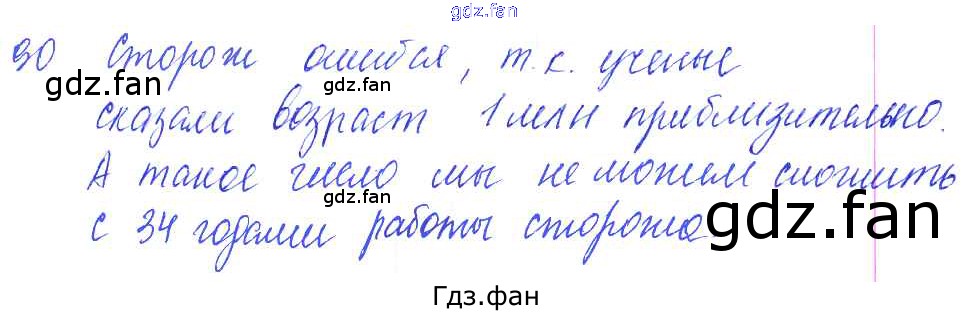 gdz.fan
30 Сторож ошибся, т.к. ученые
gdz.fan
gdz.fan
сказали возраст 1 млн приблизительно.
А такое число мы не можем сложить
gdz.fan
gdz.fan
с 34 годами работы сторожа
Гдз.фан